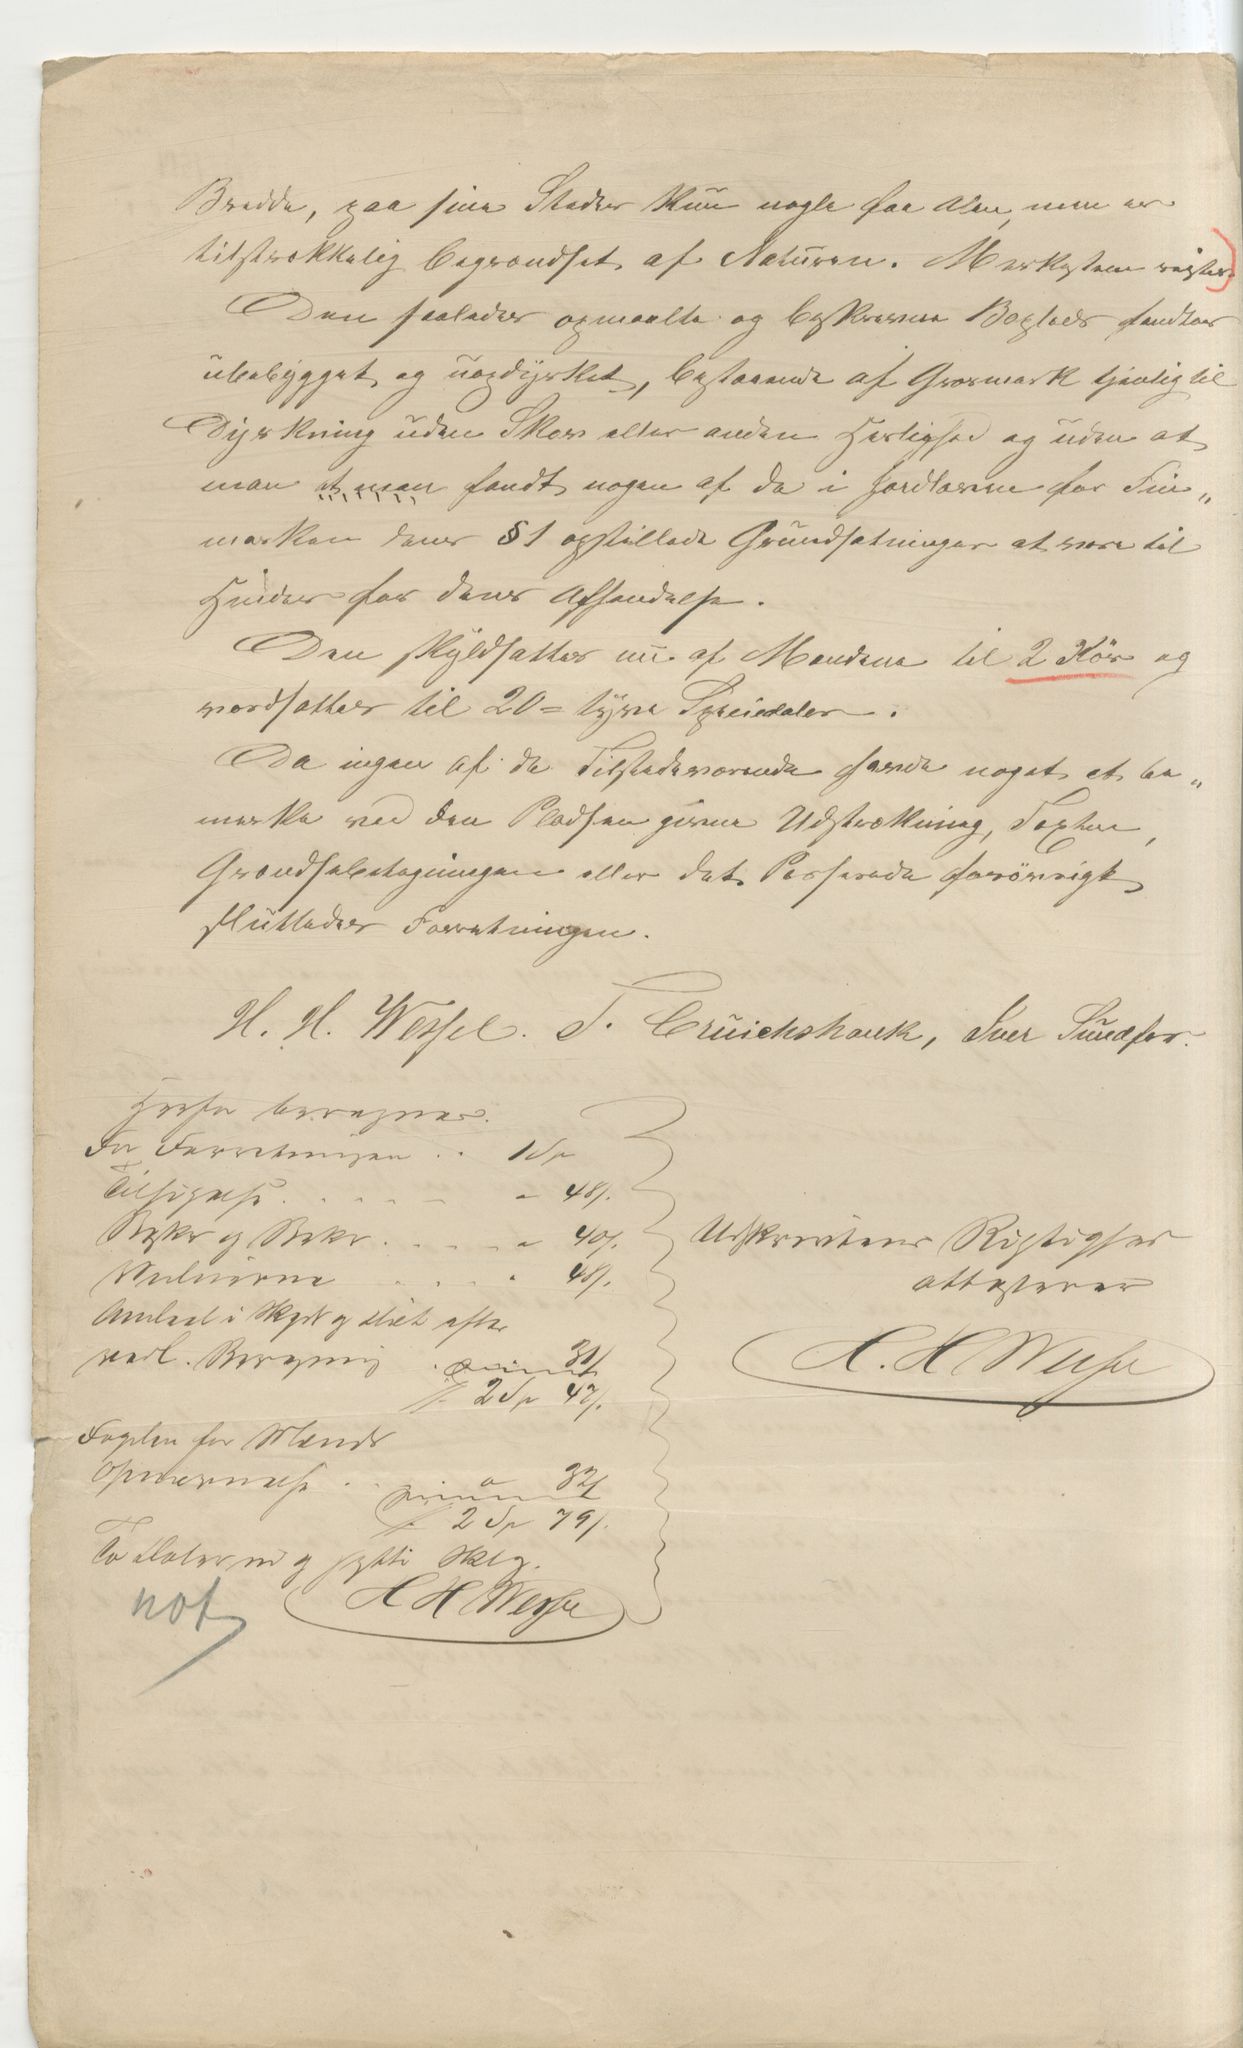 Bredde, paa sine Steder kun nogle faa Alen, men er
tilstrækkelig begrændset af Naturen. Merkestene reistes.
Den saaledes opmaalte og beskrevne Boplads fandtes
ubebygget og uopdyrket, bestaaende af Græsmark tjenlig til
Dyrkning uden Skov eller anden Herlighed og uden at
man at man fandt nogen af de i Jordloven for Fin„
marken dens § 1 opstillede Grundsætninger at være til
Hinder for dens Afhændelse.
Den skyldsattes nu af Mændene til 2 Kör og
værdsattes til 20 = tyve Speciedaler.
Da ingen af de Tilstedeværende havde noget at be„
mærke ved den Pladsen givne Udstrækning, Taxten,
Grændsebetegningen eller det Passerede forövrigt
sluttedes Forretningen.
H. H. Wessel. T. Cruickshank, Iver Sundfær.
Herfor beregnes.
For Forretningen .. 1 Sp
Tilsigelse . . . . . " 48 s.
Beskr og Bekr. . . . . " 40 s.
Vidnerne . . . . 48 s.
Andeel i Skyds og Diæt efter
vedl. Beregning . 31 s
2 Sp 47 s.
Fogden for Mænds
Opnævnelse . . " 32 s
2 Sp 79 s.
To Daler ni og sytti Skig.
H H Wessel
not
Udskriftens Rigtighed
attesterer
H. H Wessel